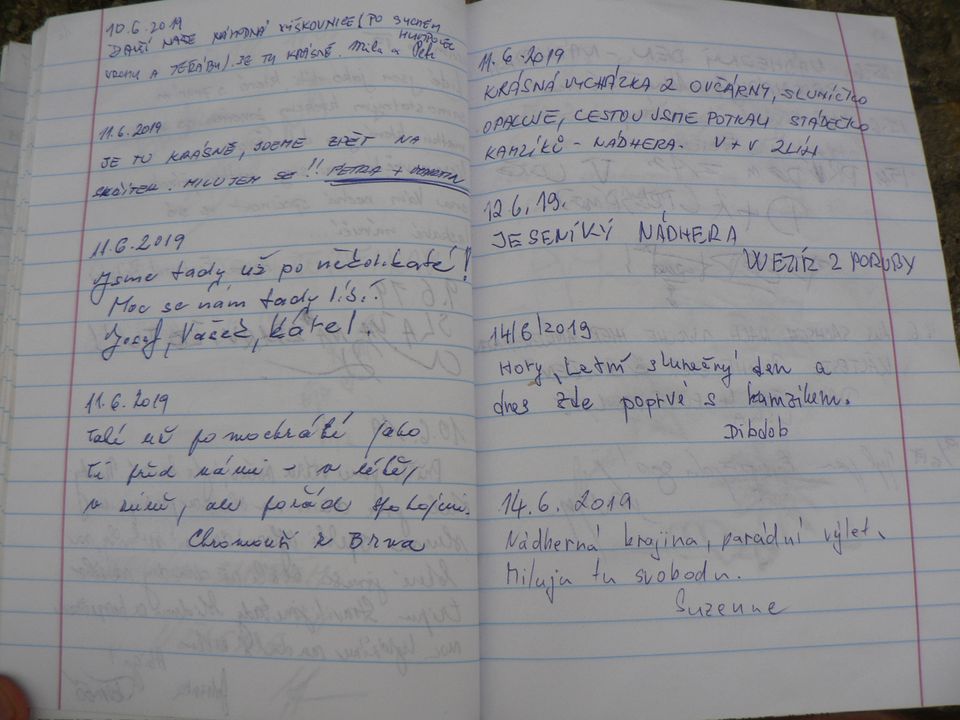 10.6.2019
DALŠÍ NAŠE NÁHODNÁ VÝŠKOVNICE (PO SUCHÉM
VRCHU A JEŘÁBU). JE TU KRÁSNĚ. Míla a Petr
11.6.2019
JE TU KRÁSNĚ, JDEME ZPĚT NA
SKŘÍTEK. MILUJEM SE!! PETRA + MARTIN
11.6.2019
Jsme tady už po několikáté!
Moc se nám tady líbí.
Josef, Vašek, Karel.
11.6.2019
Také už pomockráté jako
ti před námi – v létě,
v zimě, ale pořád spokojeni.
Chromouši z Brna
11.6.2019
KRÁSNÁ VYCHÁZKA Z OVČÁRNY, SLUNÍČKO
OPALUJE, CESTOU JSME POTKALI STÁDEČKO
KAMZÍKŮ – NÁDHERA. V + V ZLÍN
12.6.19.
JESENÍKÝ NÁDHERA
WEZÍR Z PORUBY
14/6/2019
Hory, Letní slunečný den a
dnes zde poprvé s kamzíkem.
Dibdob
14.6.2019
Nádherná krajina, parádní výlet.
Miluju tu svobodu.
Suzenne